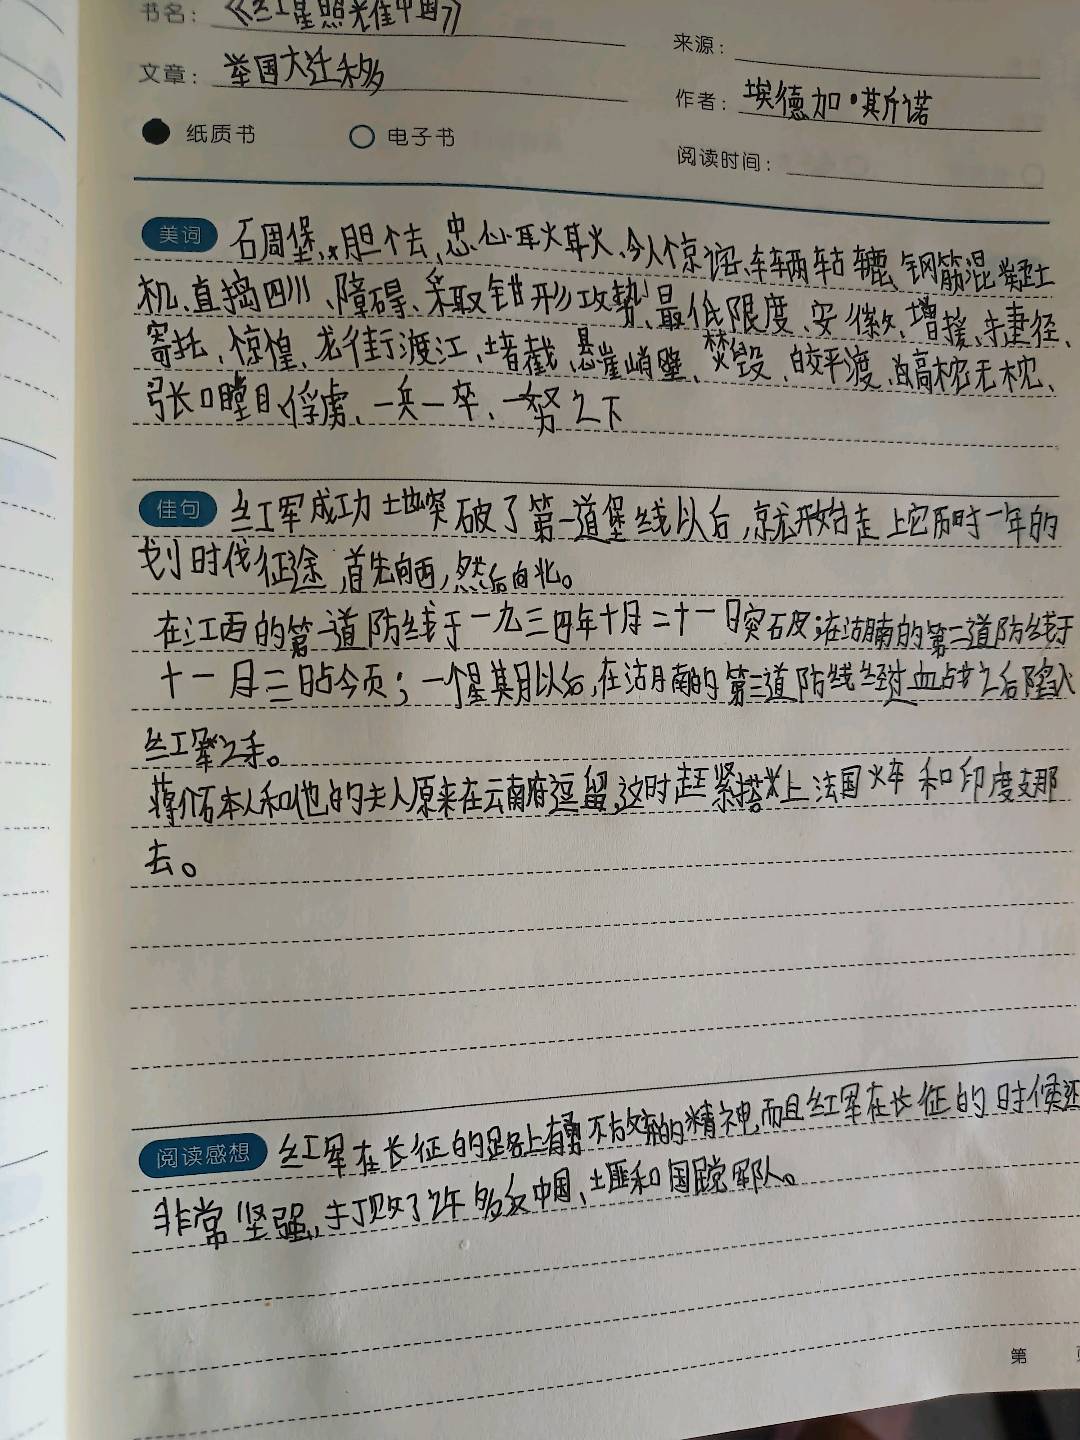 书名：《红星照耀中国》
来源：
文章：举国大迁移
作者：埃德加·斯诺
纸质书 电子书
阅读时间：
美词 碉堡、胆怯、忠心耿耿、令人惊诧、车辆轱辘、钢筋混凝土
机、直捣四川、障碍、采取钳形攻势、最低限度、安徽、增援、捷径、
寄托、惊惶、横渡江、堵截、悬崖峭壁、焚毁、摆渡、高枕无忧、
张口瞠目、俘虏、一兵一卒、一怒之下
佳句 红军成功地突破了第一道堡线以后，就开始走上它历时一年的
划时代征途，首先向西，然后向北。
在江西的第一道防线于一九三四年十月二十一日突破；在湖南的第二道防线于
十一月三日占领；一个星期以后，在湖南的第三道防线经过血战之后陷入
红军之手。
蒋介石本人和他的夫人原来在云南府逗留，这时赶紧搭上法国火车和印度支那
去。
阅读感想 红军在长征的路上有勇不放弃的精神，而且红军在长征的时候还
非常坚强，打败了许多中国、土匪和国民党军队。
第